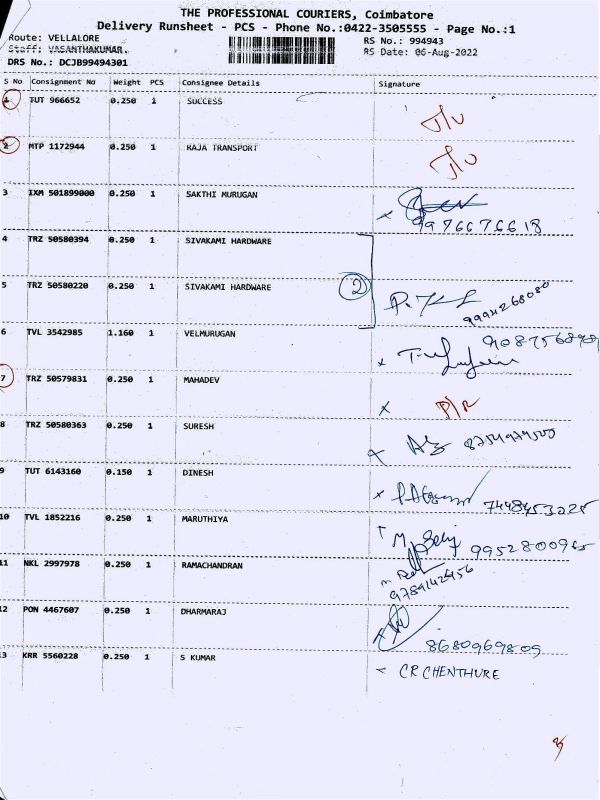 THE PROFESSIONAL COURIERS, Coimbatore
Delivery Runsheet - PCS - Phone No.:0422-3505555 - Page No.:1
Route: VELLALORE RS No.: 994943
Staff: VASANTHAKUMAR. RS Date: 06-Aug-2022
DRS No.: DCJB99494301
S No Consignment No Weight PCS Consignee Details Signature
1 TUT 966652 0.250 1 SUCCESS
2 MTP 1172944 0.250 1 RAJA TRANSPORT
3 IXM 501899000 0.250 1 SAKTHI MURUGAN
9976676618
4 TRZ 50580394 0.250 1 SIVAKAMI HARDWARE
5 TRZ 50580220 0.250 1 SIVAKAMI HARDWARE 2
9994268080
6 TVL 3542985 1.160 1 VELMURUGAN
7 TRZ 50579831 0.250 1 MAHADEV
8 TRZ 50580363 0.250 1 SURESH
9 TUT 6143160 0.150 1 DINESH
10 TVL 1852216 0.250 1 MARUTHIYA
11 NKL 2997978 0.250 1 RAMACHANDRAN
9789142456
12 PON 4467607 0.250 1 DHARMARAJ
8680969809
13 KRR 5560228 0.250 1 S KUMAR CR CHENTHURE